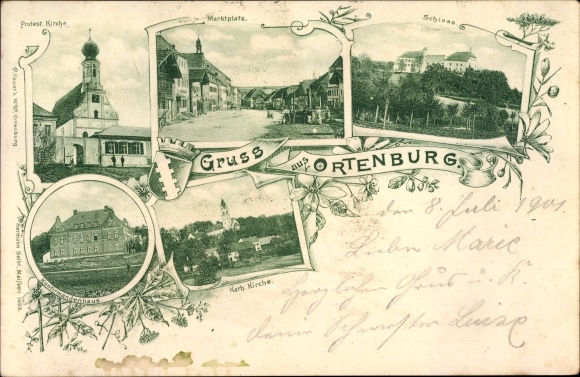 Protest. Kirche.
Marktplatz.
Schloss.
Gruss aus ORTENBURG.
Kath. Kirche.
den 8. Juli 1901
Liebe Marie
Herzlichen Gruß u. K.
deine Schwester Luise